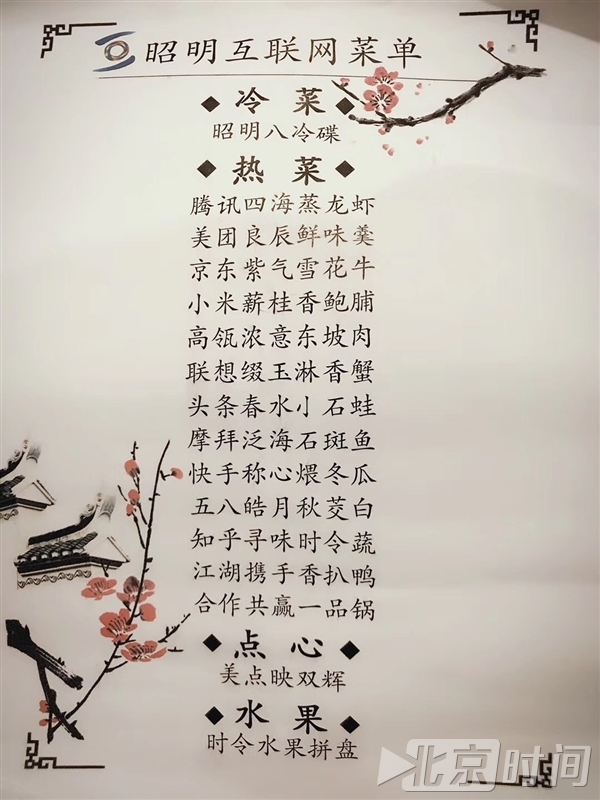 昭明互联网菜单
◆ 冷菜 ◆
昭明八冷碟
◆ 热菜 ◆
腾讯四海蒸龙虾
美团良辰鲜味羹
京东紫气雪花牛
小米薪桂香鲍脯
高瓴浓意东坡肉
联想缀玉淋香蟹
头条春水小石蛙
摩拜泛海石斑鱼
快手称心煨冬瓜
五八皓月秋茭白
知乎寻味时令蔬
江湖携手香扒鸭
合作共赢一品锅
◆ 点心 ◆
美点映双辉
◆ 水果 ◆
时令水果拼盘
北京时间